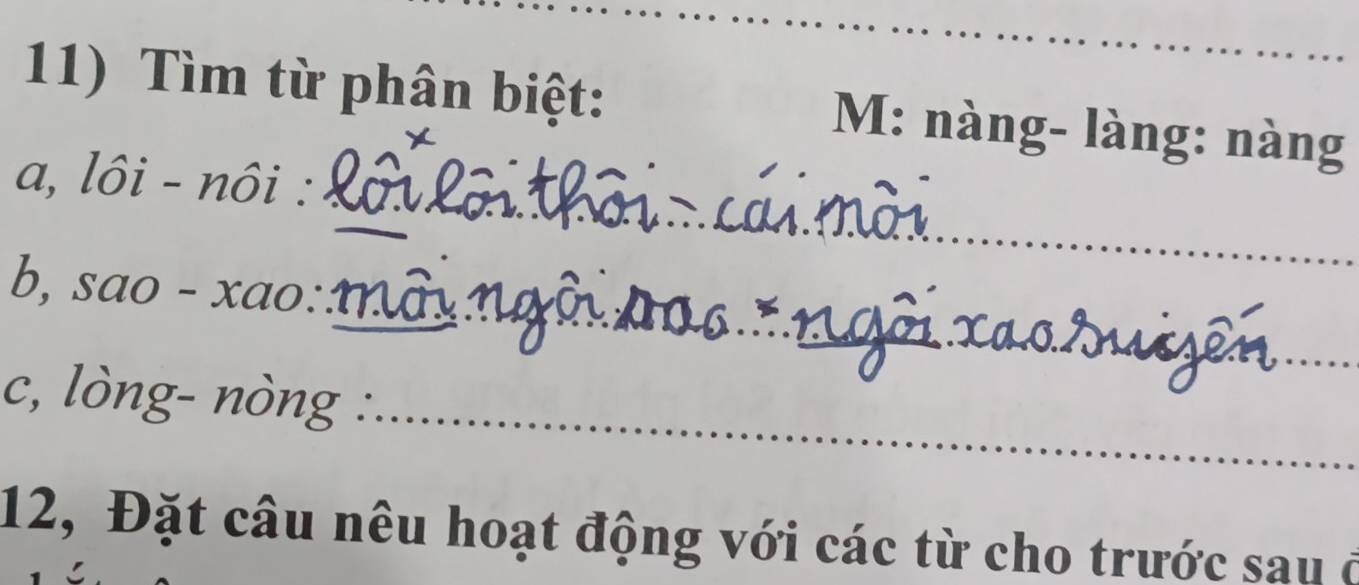 11) Tìm từ phân biệt:
M: nàng- làng: nàng
a, lôi - nôi : lôi lôi thôi - cái môi
b, sao - xao: môi ngôi sao - ngôi xao suyến
c, lòng- nòng :
12, Đặt câu nêu hoạt động với các từ cho trước sau